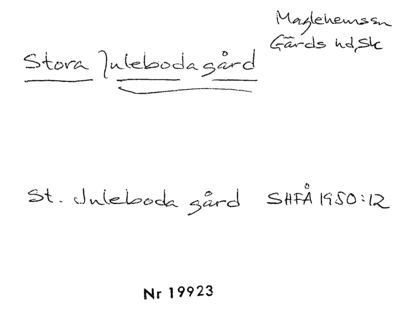 Maglehemssn
Gärds hd, Sk
Stora Juleboda gård
St. Juleboda gård SHFÅ 1950:12
Nr 19923